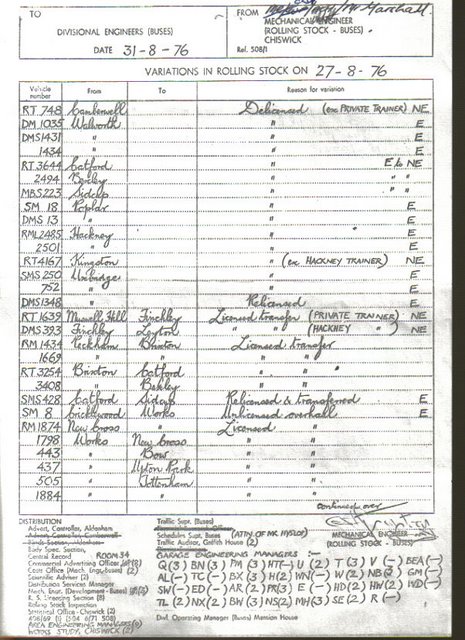 TO
DIVISIONAL ENGINEERS (BUSES)
DATE 31-8-76
FROM
MECHANICAL ENGINEER
(ROLLING STOCK - BUSES)
CHISWICK
Rel. 508/1
VARIATIONS IN ROLLING STOCK ON 27-8-76
Vehicle number From To Reason for variation
RT 748 Camberwell Delicensed (ex PRIVATE TRAINER) NE
DM 1035 Walworth " E
DMS1431 " " E
1434 " " E
RT 3644 Catford " E/b NE
2494 Bexley " " "
MBS223 Sidcup " " "
SM 18 Poplar " E
DMS 13 " " E
RML2485 Hackney " E
2501 " " E
RT4167 Kingston " (ex HACKNEY TRAINER) NE
SMS 250 Uxbridge " E
752 " " E
DMS1348 " Relicensed E
RT.1639 Muswell Hill Finchley Licensed transfer (PRIVATE TRAINER) NE
DMS393 Finchley Leyton " " (HACKNEY " ) NE
RM 1434 Peckham Brixton Licensed transfer
1669 " " " "
RT 3254 Brixton Catford " "
3408 " Bexley " "
SMS428 Catford Sidcup Relicensed & transferred E
SM 8 Cricklewood Works Unlicensed overhaul E
RM1874 New Cross " Licensed "
1798 Works New Cross " "
443 " Bow " "
437 " Upton Park " "
505 " Tottenham " "
1884 " " " "
continued over
MECHANICAL ENGINEER
(ROLLING STOCK - BUSES)
DISTRIBUTION
Advert. Controller, Aldenham
Body Spec. Section,
Central Record ROOM 34
Commercial Advertising Officer
Costs Office (Mech. Eng.-buses) (2)
Scientific Adviser (2)
Distribution Services Manager
Mech. Engr. (Development - Buses)
R. S. Licensing Section (8)
Rolling Stock Inspection
Statistical Office - Chiswick (2)
AREA ENGINEERING MANAGERS
WORKS STUDY, CHISWICK (2)
Traffic Supt. (Buses)
Schedules Supt. Buses (ATTN. OF MR HYSLOP)
Traffic Auditor, Griffith House (2)
GARAGE ENGINEERING MANAGERS :-
Q(3) BN(3) PM(3) HT(-) U(2) T(3) V(-) BEA(-)
AL(-) TC(-) BX(3) H(2) WN(-) W(2) NB(2) GM(-)
SW(-) ED(-) AR(2) PR(3) E(-) HD(2) HW(2) WD(-)
TL(2) NX(2) BW(3) NS(2) MH(3) SE(2) R(-)
Divl. Operating Manager (Buses) Mansion House